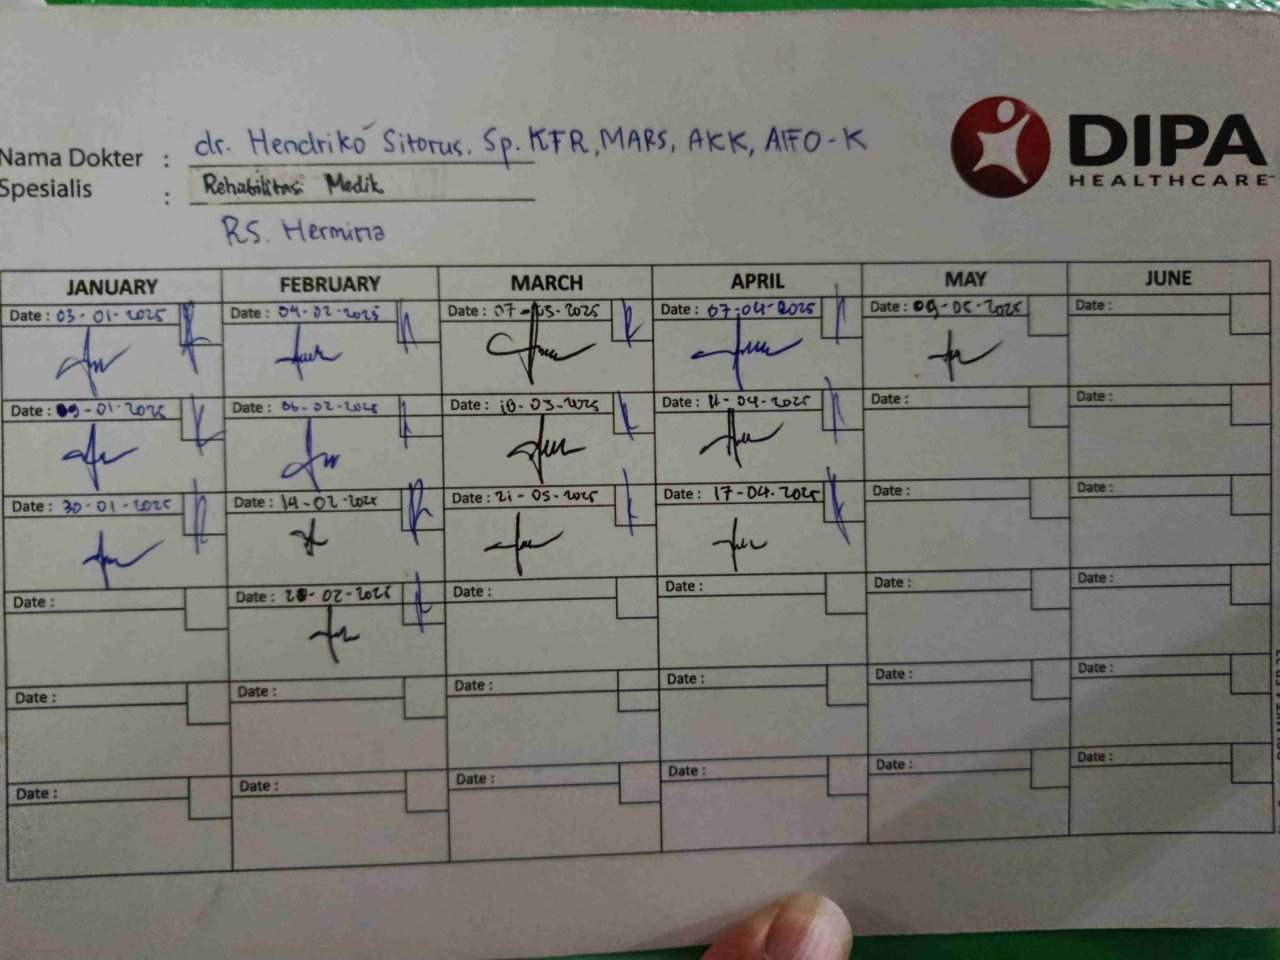 Nama Dokter : dr. Hendriko Sitorus. Sp. KFR, MARS, AKK, AIFO-K
Spesialis : Rehabilitasi Medik
RS. Hermina
DIPA
HEALTHCARE
JANUARY FEBRUARY MARCH APRIL MAY JUNE
Date : 03-01-2025 Date : 04-02-2025 Date : 07-03-2025 Date : 07-04-2025 Date : 09-05-2025 Date :
Date : 09-01-2025 Date : 06-02-2025 Date : 10-03-2025 Date : 11-04-2025 Date : Date :
Date : 30-01-2025 Date : 14-02-2025 Date : 21-03-2025 Date : 17-04-2025 Date : Date :
Date : Date : 28-02-2025 Date : Date : Date : Date :
Date : Date : Date : Date : Date : Date :
Date : Date : Date : Date : Date : Date :